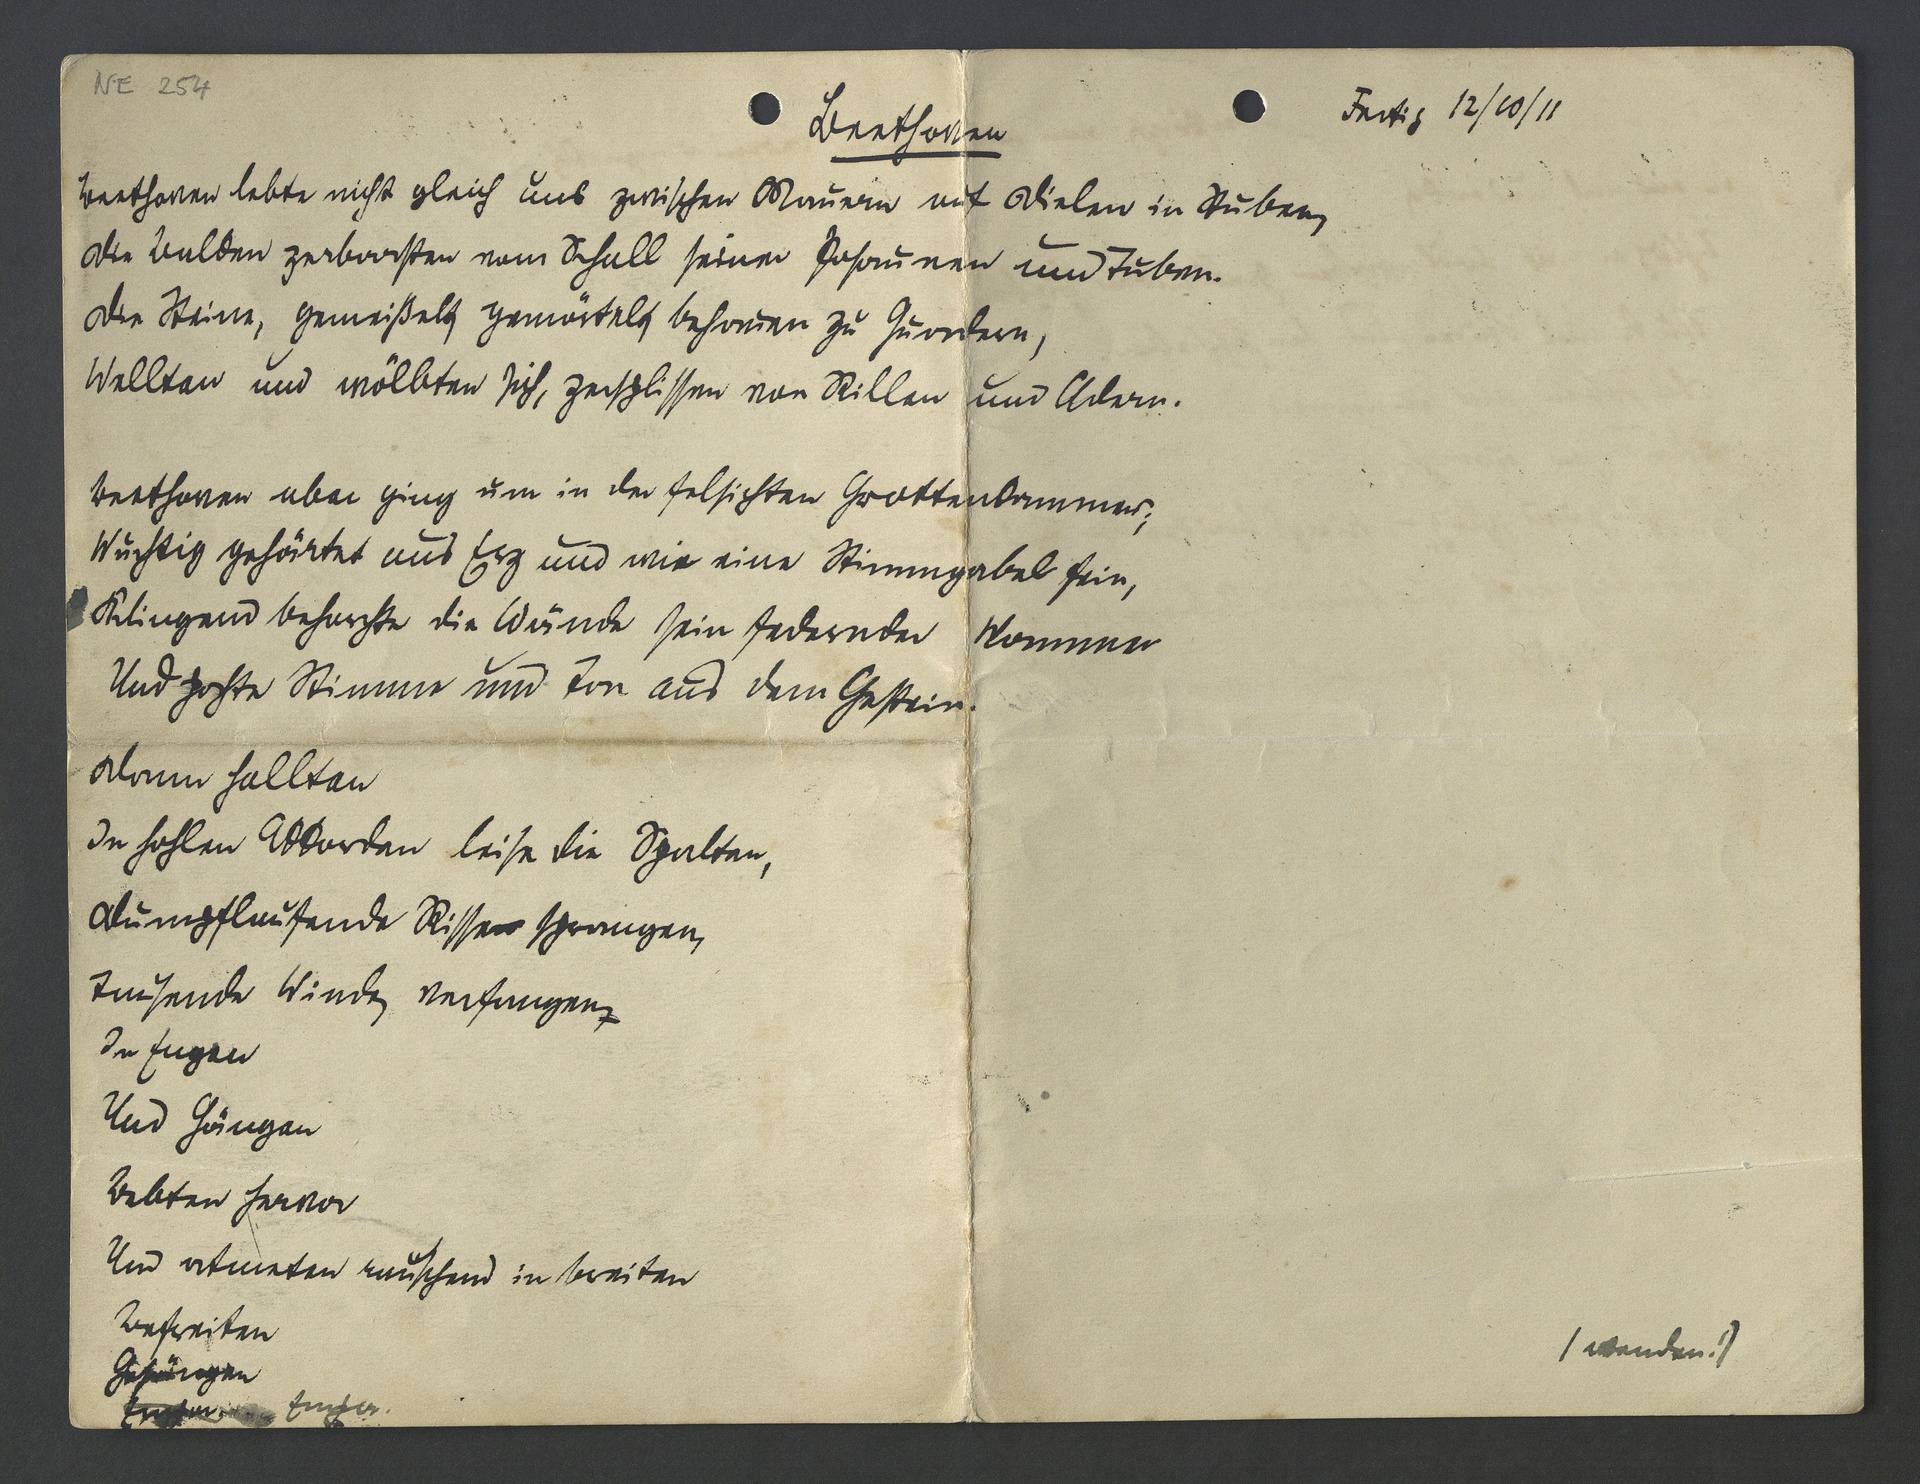 NE 254
Beethoven
Fertig 12/10/11
Beethoven lebte nicht gleich uns zwischen Mauern auf Dielen in Stuben,
Die Balken zerborsten vom Schall seiner Posaunen und Tuben.
Die Steine, gemeißelt, gemörtelt, behauen zu Quadern,
Wellten und wölbten sich, zersplissen von Rillen und Adern.
Beethoven aber ging um in der felsichten Grottenkammer;
Wuchtig gehärtet aus Erz und wie eine Stimmgabel fein,
Klingend behorchte die Wände sein federnder Hammer
Und pochte Stimme und Ton aus dem Gestein.
Dann hallten
In hohlen Akkorden leise die Spalten,
Dumpflaufende Risse sprangen,
Tausende Winde, verfangen
In Engen
Und Gängen
Bebten hervor
Und atmeten rauschend in breiten
Befreiten
Gesängen
Empor.
(wenden!)